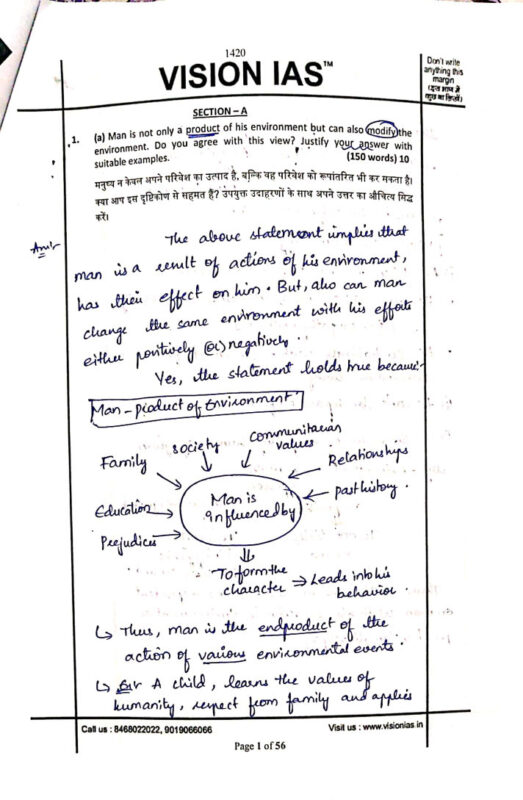 1420
VISION IAS™
Don't write
anything this
margin
(इस भाग में
कुछ ना लिखें)
SECTION – A
1. (a) Man is not only a product of his environment but can also modify the
environment. Do you agree with this view? Justify your answer with
suitable examples. (150 words) 10
मनुष्य न केवल अपने परिवेश का उत्पाद है, बल्कि वह परिवेश को रूपांतरित भी कर सकता है।
क्या आप इस दृष्टिकोण से सहमत हैं? उपयुक्त उदाहरणों के साथ अपने उत्तर का औचित्य सिद्ध
करें।
The above statement implies that
man is a result of actions of his environment,
has their effect on him. But, also can man
change the same environment with his efforts
either positively (or) negatively.
Yes, the statement holds true because:-
Man – product of Environment
Family
society
communitarian
values
Relationships
past history.
Education
Prejudices
Man is
influenced by
To form the
character → Leads into his
behavior.
↳ Thus, man is the endproduct of the
action of various environmental events.
↳ A child, learns the values of
humanity, respect from family and applies
Call us : 8468022022, 9019066066
Visit us : www.visionias.in
Page 1 of 56